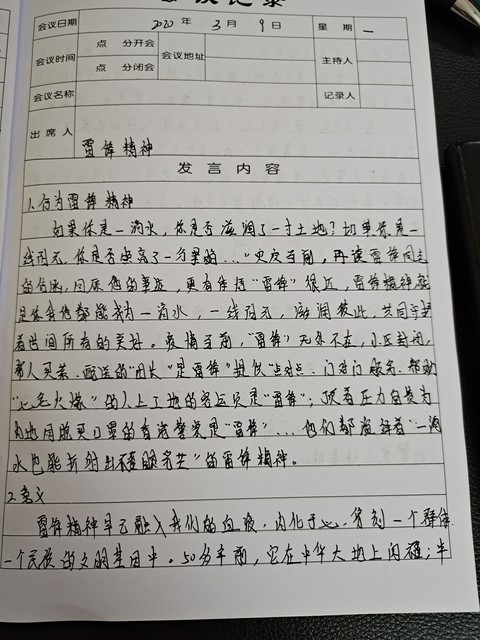 会议记录
会议日期 2020 年 3 月 9 日 星期 一
会议时间 点 分开会 会议地址 主持人
点 分闭会
会议名称 记录人
出席人
雷锋精神
发言内容
1.何为雷锋精神
如果你是一滴水，你是否滋润了一寸土地？如果你是一
线阳光，你是否照亮了一分黑暗…"灾疫当前，再读雷锋同志
的日记，回顾他的事迹，更有伴结"雷锋"很近，雷锋精神
是 我们都能成为一滴水，一线阳光，滋润彼此，共同守护
着世间所有的美好。疫情当前，"雷锋"无处不在，小区封闭，
帮人买菜、配送的"团长"是雷锋"提供"点对点、门对门服务，帮助
" "的人上工地的客运员是"雷锋"；顶着压力自费为
当地用服买口罩的香港警察是"雷锋"…他们都诠释着"一滴
水也能折射出太阳光芒"的雷锋精神。
2.意义
雷锋精神早已融入我们的血液，内化于心，篆刻一个群体
一个民族的文明基因中。50多年前，它在中华大地上闪耀；半